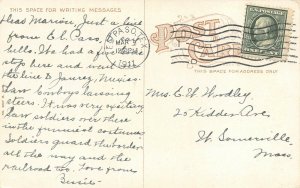 THIS SPACE FOR WRITING MESSAGES
Dear Marion, Just a line
from El Paso,
hills. We had a few
stop here and went
the line to Juarez, Mexico.
Saw Cowboys lassoing
steers. It was very exciting
saw soldiers over there
in the funniest costumes
Soldiers guard the border
all the way and the
railroad too. Love from
Bessie
EL PASO, TEX.
MAR
12 M
1911
POST CARD
THIS SPACE FOR ADDRESS ONLY
U.S. POSTAGE
Mrs. E. W. Woodley
20 Kidder Ave
W. Somerville
Mass.